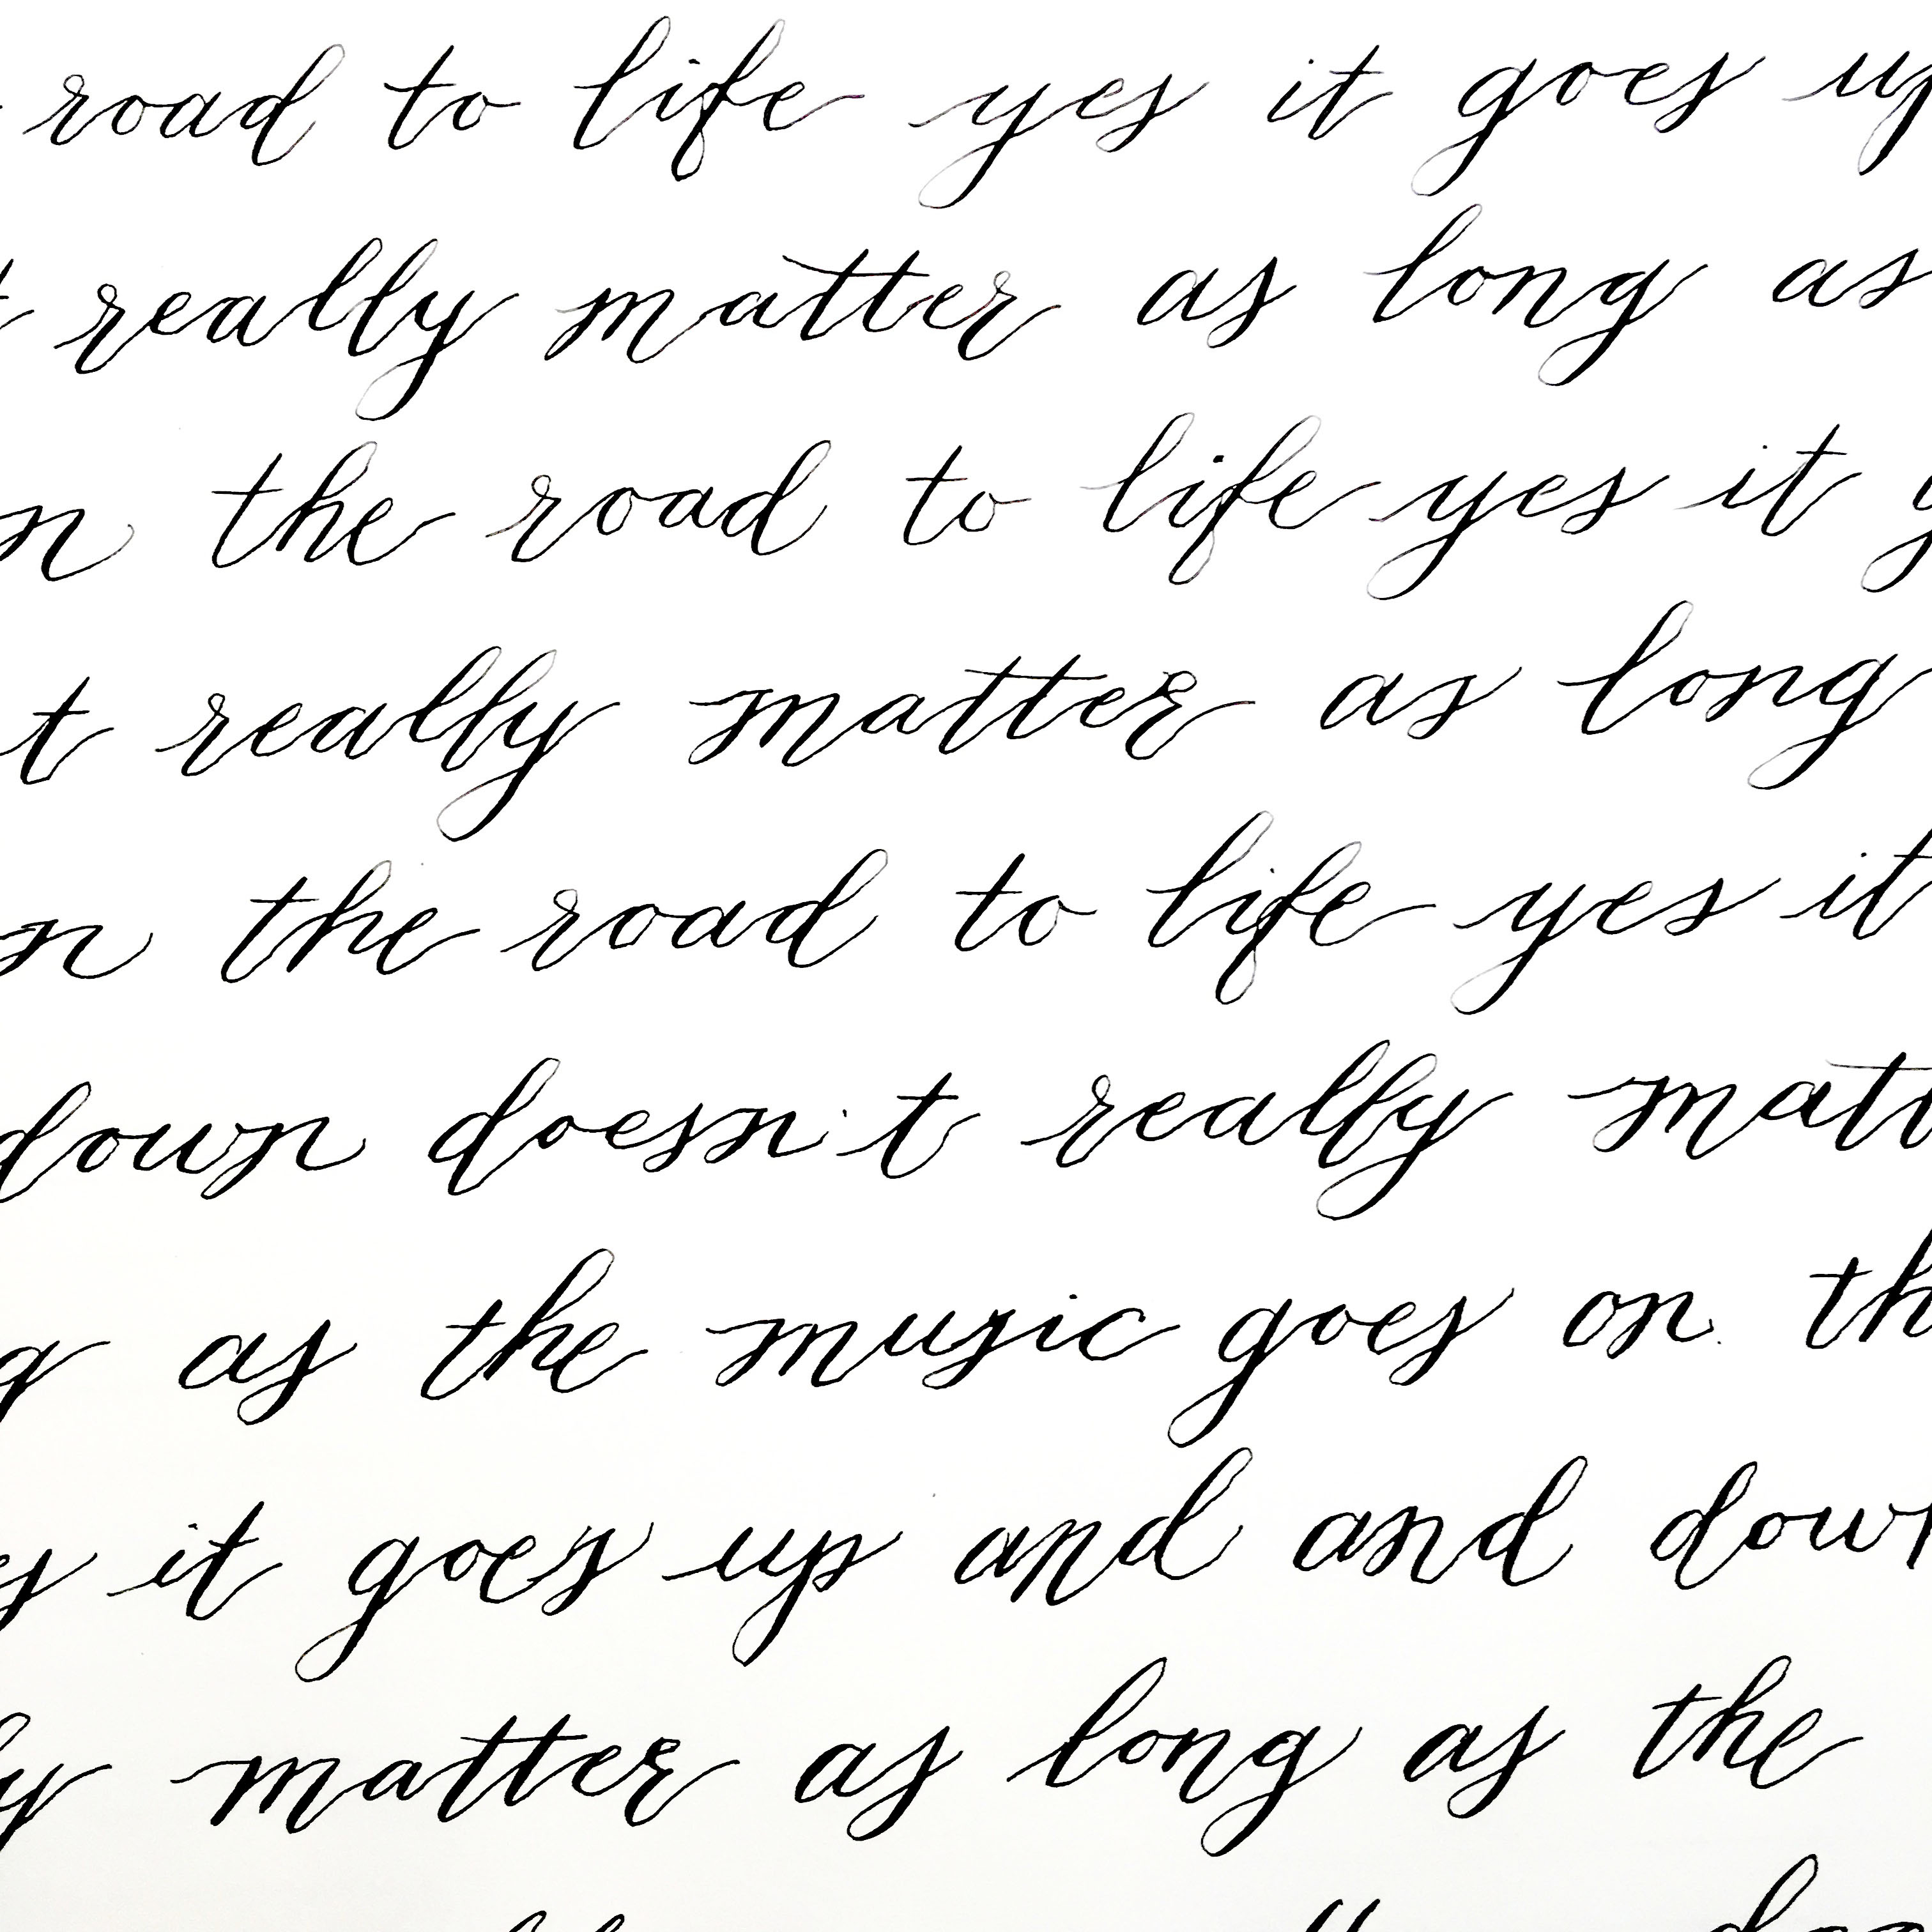 road to life yes it goes up
t really matter as long as
n the road to life yes it g
t really matter as long
n the road to life yes it
down doesn't really matt
g as the music goes on th
es it goes up and and down
ly matter as long as the